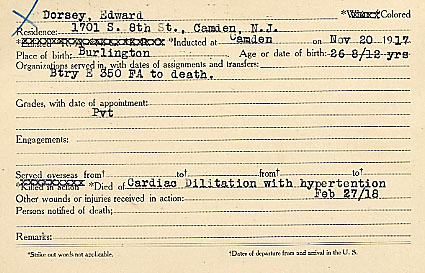 Dorsey, Edward *White Colored
Residence: 1701 S. 8th St., Camden, N.J.
*Inducted at Camden on Nov 20 1917
Place of birth: Burlington Age or date of birth: 26 8/12 yrs
Organizations served in, with dates of assignments and transfers:
Btry E 350 FA to death.
Grades, with date of appointment:
Pvt
Engagements:
Served overseas from† to† from† to†
*Killed in action *Died of Cardiac Dilitation with hypertention
Other wounds or injuries received in action: Feb 27/18
Persons notified of death:
Remarks:
*Strike out words not applicable. †Dates of departure from and arrival in the U. S.